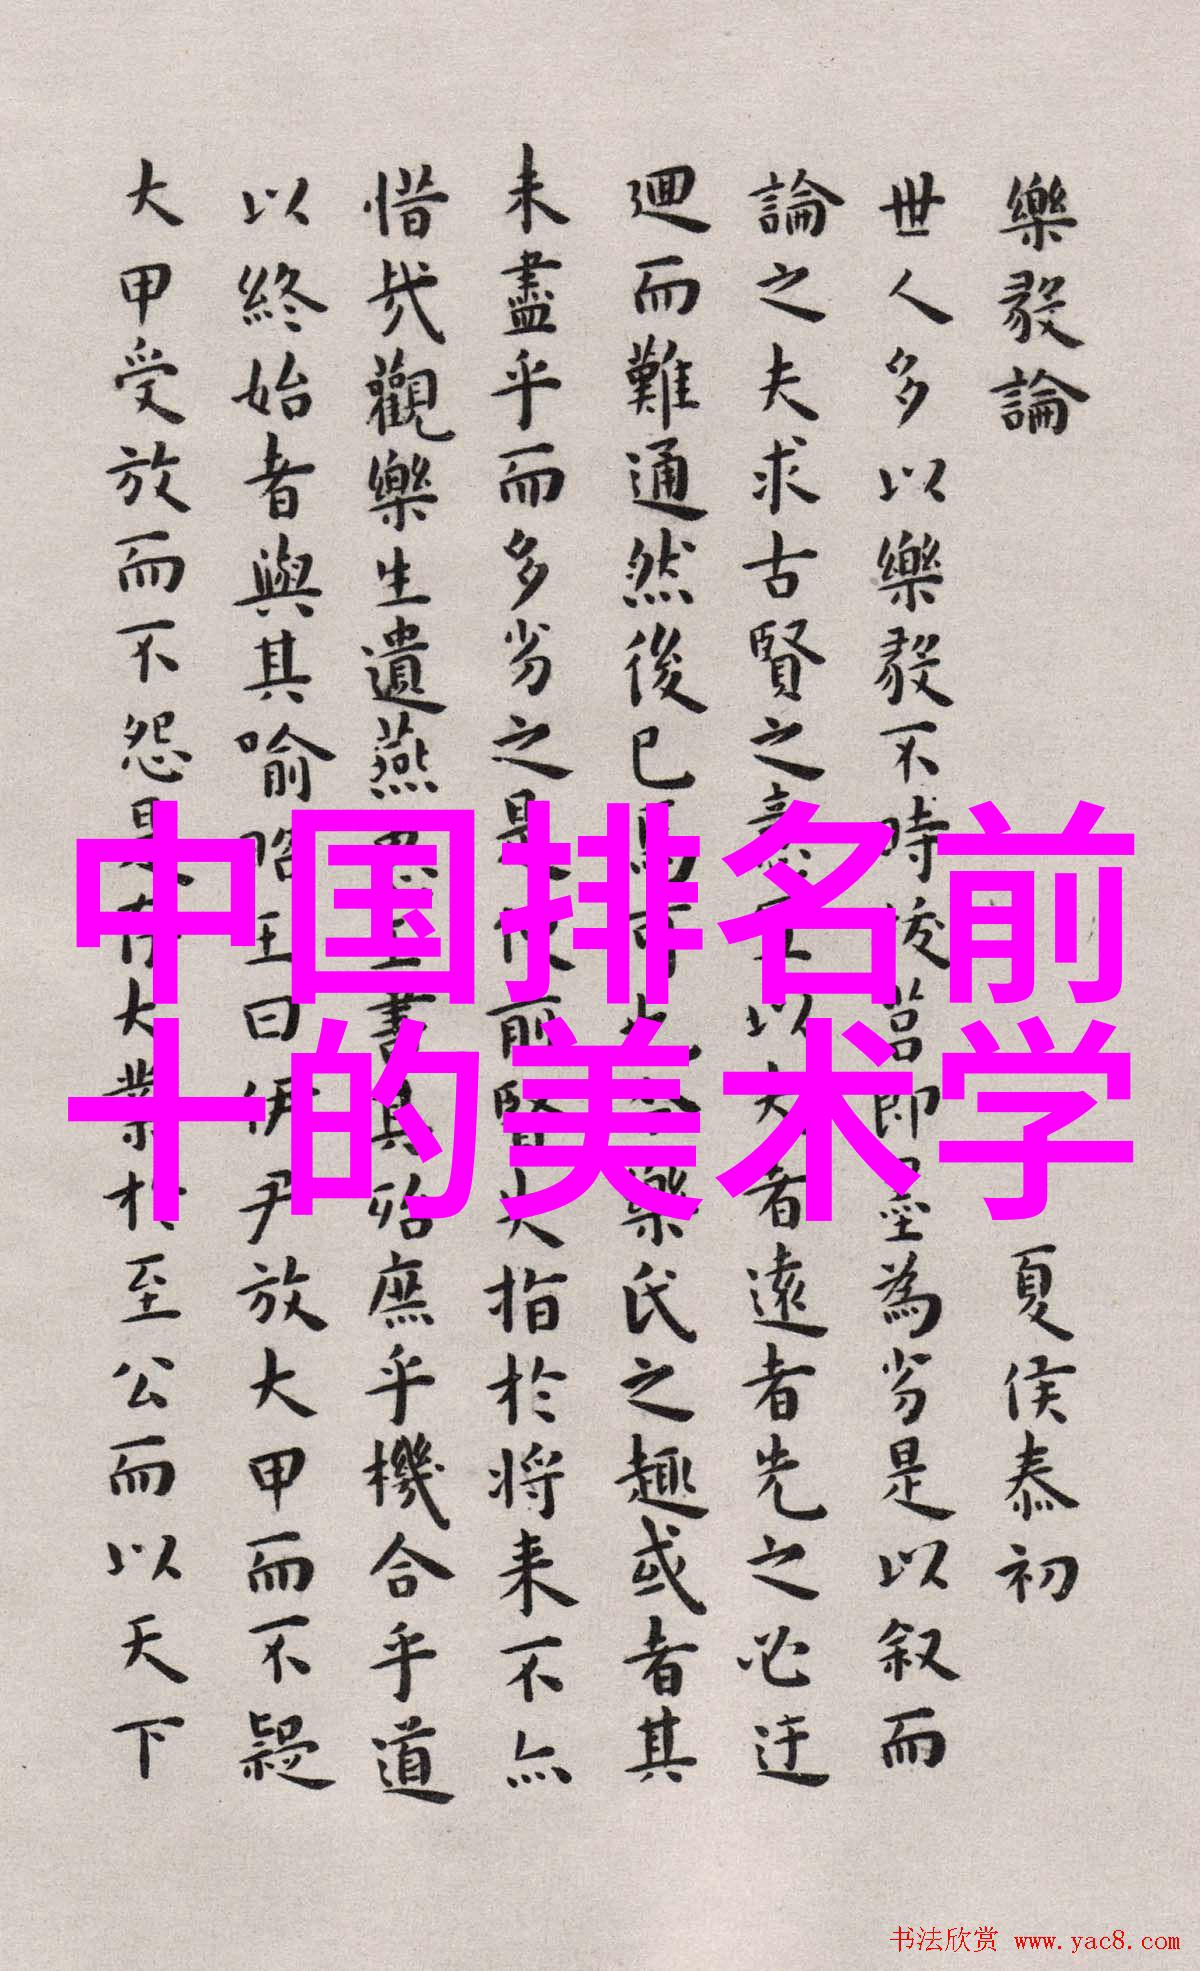 樂毅論　夏侯泰初
世人多以樂毅不時拔莒即墨為劣是以叙而
論之夫求古賢之意宜以大者遠者先之必迂
迴而難通然後已焉可也今樂氏之趣或者其
未盡乎而多劣之是使前賢失指於將来不亦
惜哉觀樂生遺燕惠王書其殆庶乎機合乎道
以終始者與其喻昭王曰伊尹放大甲而不疑
大甲受放而不怨是存大業於至公而以天下
中国排名前
十的美术学
书法欣赏 www.yac8.com